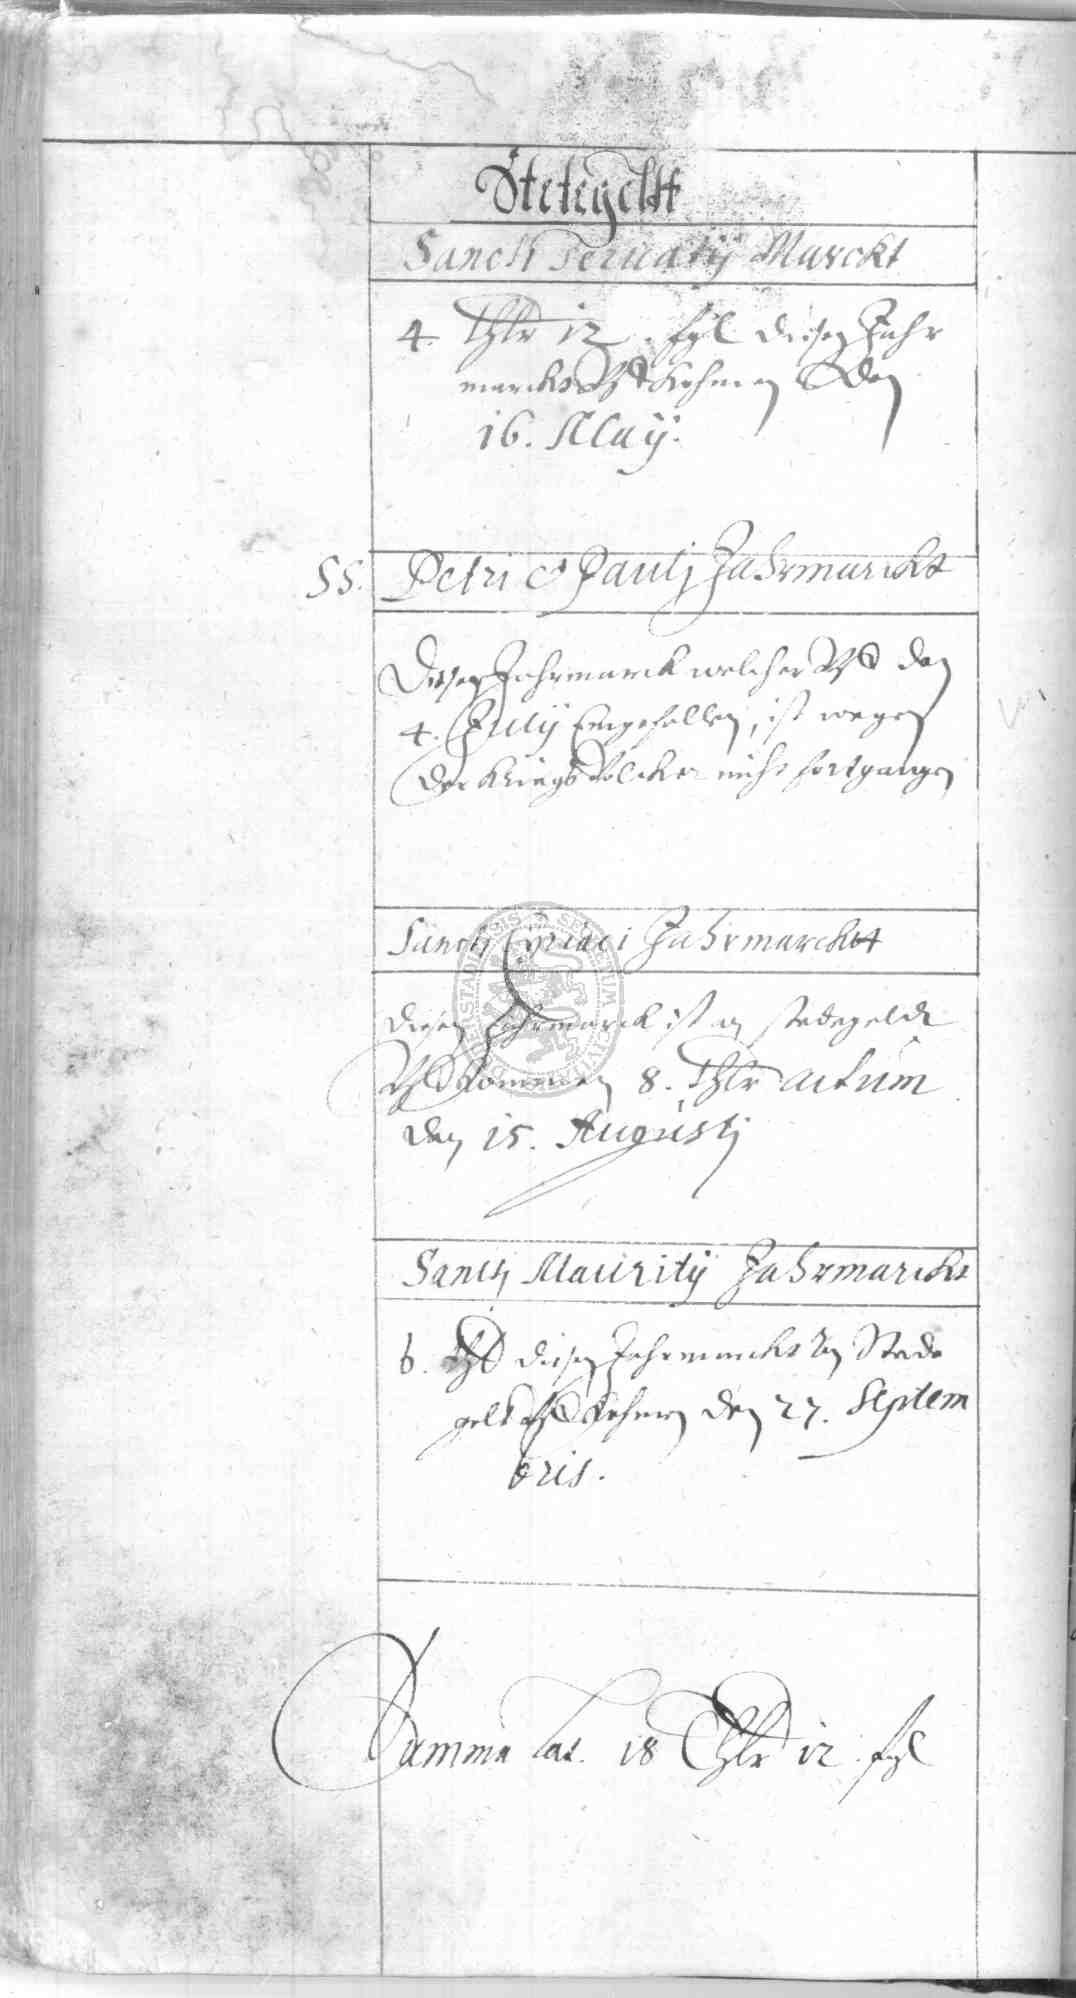 Stetegeldt
Sancti Servatij Marckt
4. Thlr 12. ßgl diesen Jahr
marckt vfkohmen den
16. Maij.
SS. Petri et Paulj Jahrmarckt
Diesen Jahrmarck welcher vf den
4. Julij Eingefallen, ist wegen
der Kriegs Völcker nicht fortgangen
Sanctj Cyriaci Jahrmarckt
diesen Jahrmarck ist an stedegelde
vfkommen 8. Thlr actum
den 15. Augustj
Sanctj Mauritij Jahrmarckt
6. Thlr diesen Jahrmarckt an Stede
geldt vfkohmen den 27. Septem
bris.
Summa Lat. 18 Thlr 12. ßgl